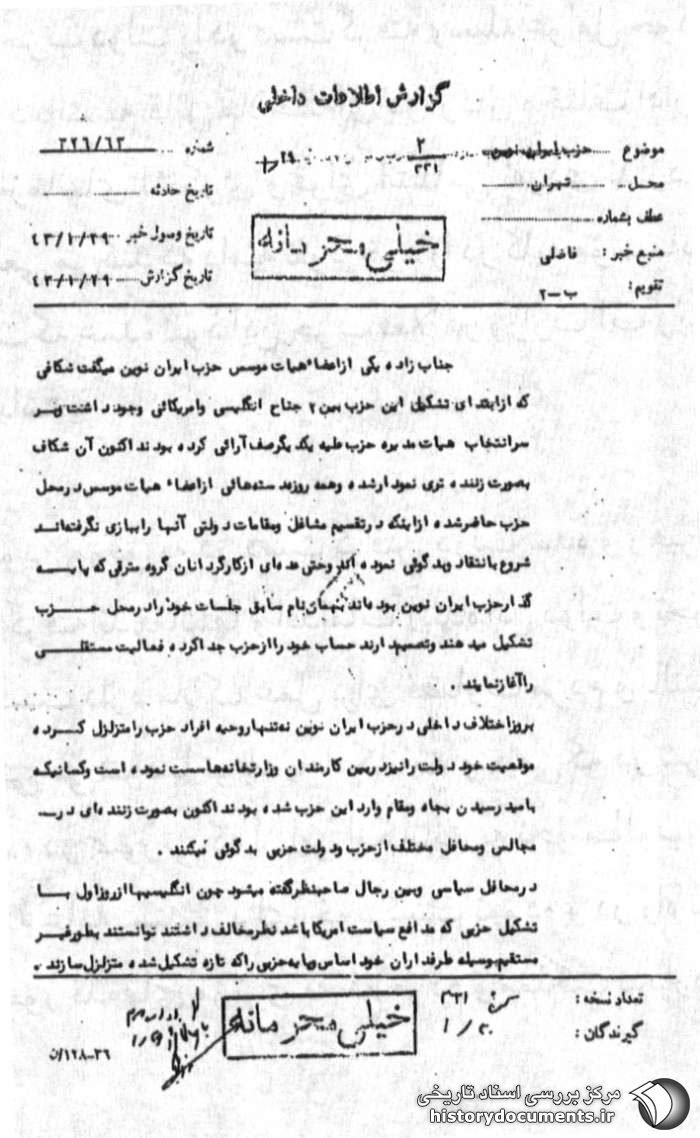 گزارش اطلاعات داخلی
موضوع حزب ایران نوین ۲/۳۳۱
شماره ۳۲۶/۶۳
محل تهران
تاریخ حادثه
عطف بشماره
تاریخ وصول خبر ۴۳/۱/۲۹
منبع خبر: فاضلی
تاریخ گزارش ۴۳/۱/۲۹
تقویم: ب-۲
خیلی محرمانه
جناب زاده یکی ازاعضاء هیات موسس حزب ایران نوین میگفت شکافی
که ازابتدای تشکیل این حزب بین ۲ جناح انگلیسی وامریکائی وجود داشت وبر
سرانتخاب هیات مدیره حزب علیه یکدیگرصف آرائی کرده بودند اکنون آن شکاف
بصورت زننده تری نمودارشده وهمه روزه دسته‌هائی ازاعضاء هیات موسس درمحل
حزب حاضرشده ازاینکه درتقسیم مشاغل ومقامات دولتی آنها رابازی نگرفته‌اند
شروع بانتقاد وبدگوئی نموده اند وحتی عده‌ای ازکارگردانان گروه مترقی که پایه
گذارحزب ایران نوین بوده‌اند بنام سابق جلسات خود رادرمحل حزب
تشکیل میدهند وتصمیم دارند حساب خود راازحزب جدا کرده فعالیت مستقلی
راآغازنمایند .
بروزاختلاف داخلی درحزب ایران نوین نه‌تنها روحیه افراد حزب رامتزلزل کرده
موقعیت خود دولت رانیزدربین کارمندان وزارتخانه‌ها سست نموده است وکسانیکه
بامید رسیدن بجاه ومقام وارد این حزب شده بودند اکنون بصورت زننده‌ای در
مجالس ومحافل مختلف ازحزب ودولت حزبی بدگوئی میکنند .
درمحافل سیاسی وبین رجال صاحبنظرگفته میشود چون انگلیسیها ازروزاول با
تشکیل حزبی که مدافع سیاست امریکا باشد نظرمخالف داشتند توانستند بطورغیر
مستقیم وسیله طرفداران خود اساس وپایه حزبی راکه تازه تشکیل شده متزلزل سازند .
تعداد نسخه: ۳۳۱
گیرندگان: ۱/۲۰
خیلی محرمانه
۱۲۸-۳۶/ن
مرکز بررسی اسناد تاریخی
historydocuments.ir